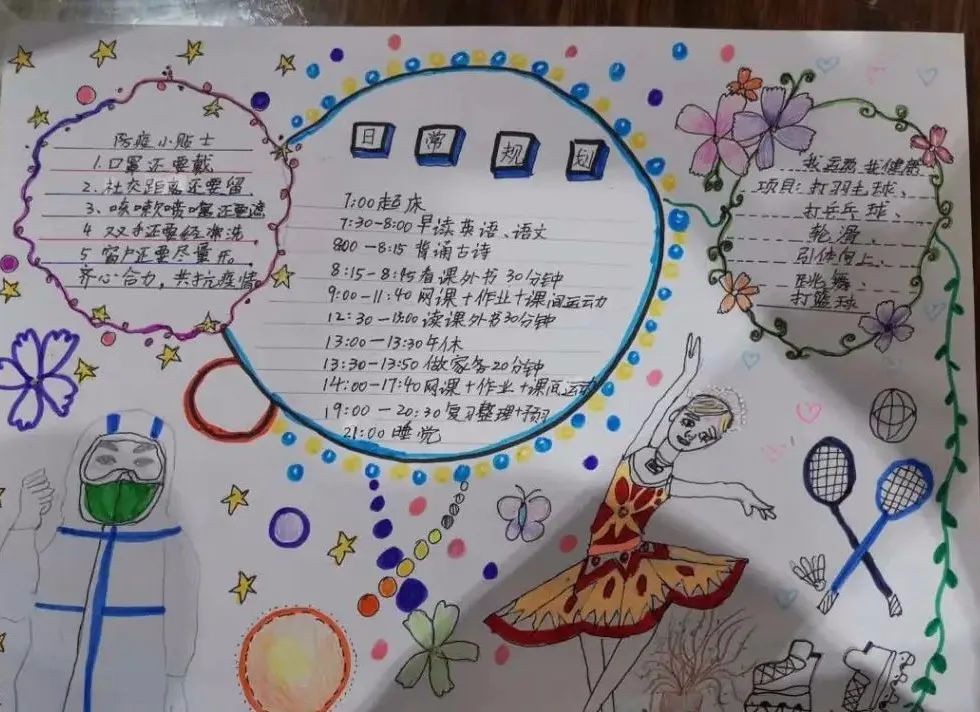 防疫小贴士
1.口罩还要戴
2.社交距离还要留
3、咳嗽喷嚏还要遮
4 双手还要经常洗
5 窗户还要尽量开
齐心合力,共抗疫情
日常规划
7:00起床
7:30-8:00早读英语、语文
8:00-8:15 背诵古诗
8:15-8:45看课外书 30分钟
9:00-11:40 网课+作业+课间运动
12:30-13:00 读课外书30分钟
13:00-13:30午休
13:30-13:50 做家务20分钟
14:00-17:40网课+作业+课间运动
19:00-20:30复习整理+预习
21:00 睡觉
我运动 我健康
项目:打羽毛球、
打乒乓球、
轮滑、
引体向上、
跳舞、
打篮球